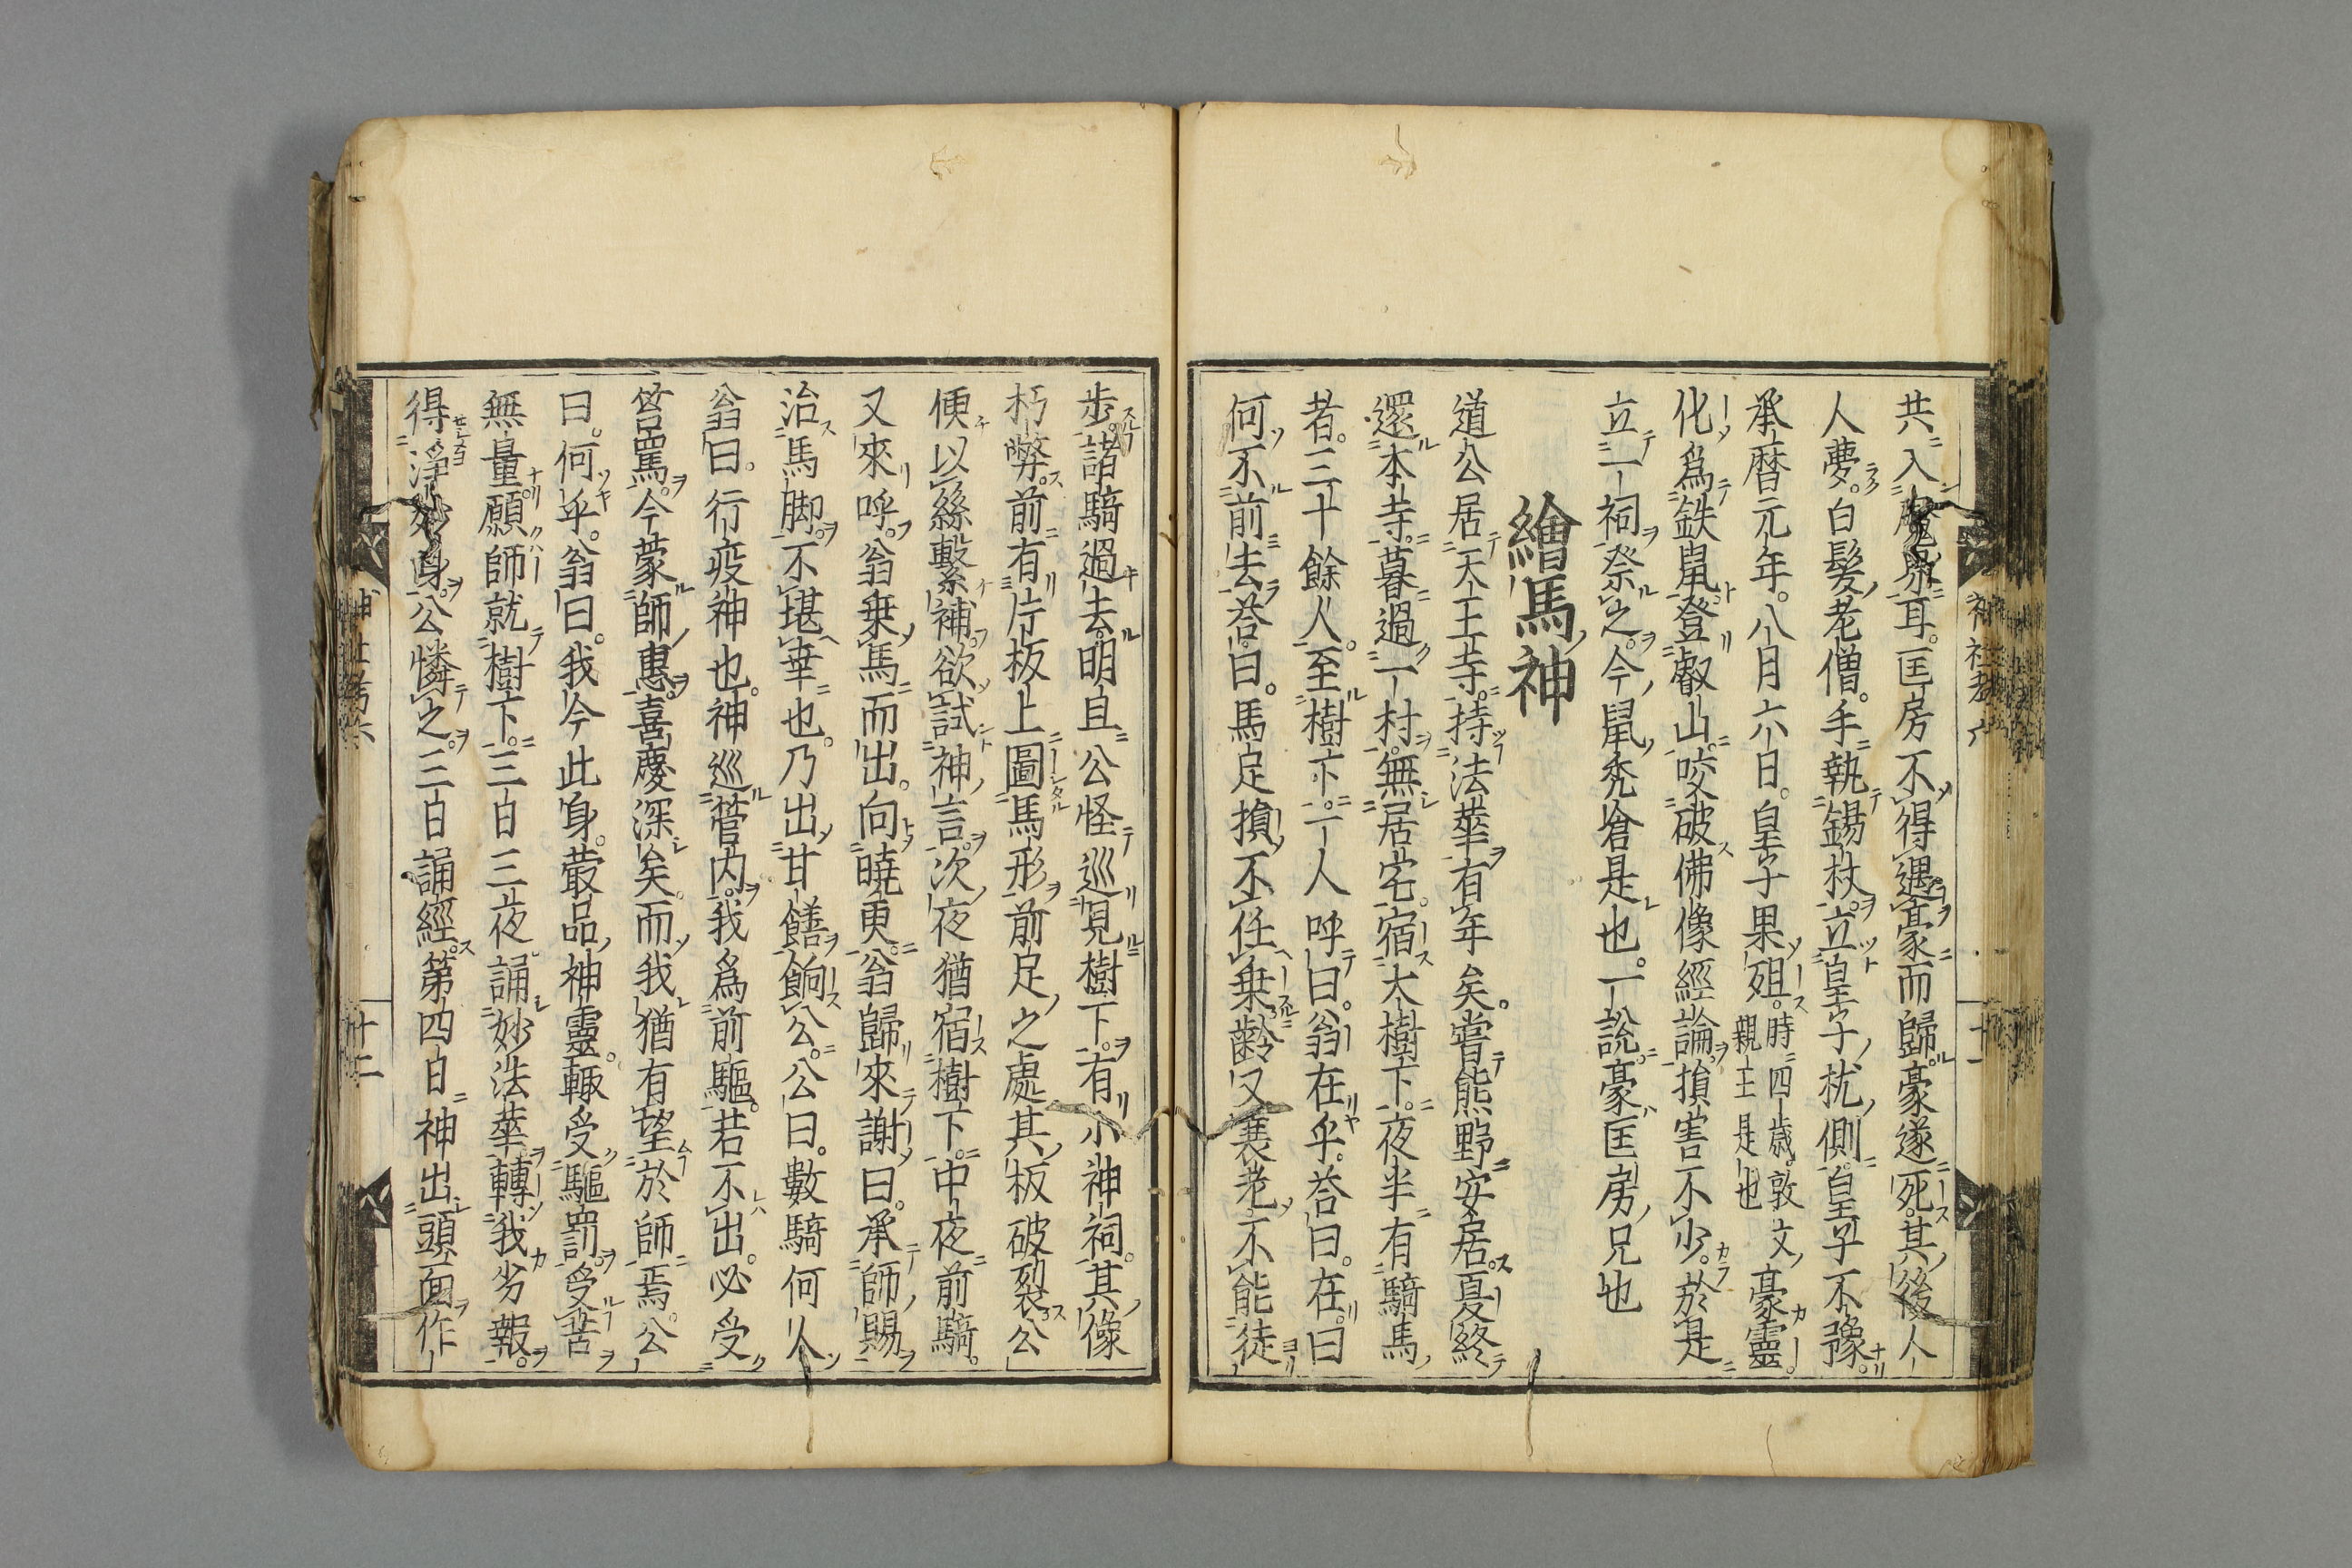 共入魔界耳。匡房不得遇豪而歸。豪遂死。其後人
人夢。白髮老僧。手執錫杖。立皇子枕側。皇子不豫。
承暦元年。八月六日。皇子果殂。時四歲。敦文親王是也豪靈
化爲鉄鼠。登叡山。咬破佛像經論。損害不少。於是
立一祠祭之。今鼠禿倉是也。一說豪匡房兄也
繪馬神
道公居天王寺。持法華有年矣。嘗熊野安居。夏終
還本寺。暮過一村。無居宅。宿大樹下。夜半有騎馬
者。二十餘人。至樹下。一人呼曰。翁在乎。荅曰。在。曰
何不前去。荅曰。馬足損。不任乘。齡又衰老。不能徒
歩。諸騎過去。明旦公怪巡見樹下。有小神祠。其像
朽弊。前有片板。上圖馬形。前足之處。其板破裂。公
便以絲繫補。欲試神言。次夜猶宿樹下。中夜前騎。
又來呼。翁乗馬而出。向曉更。翁歸來謝曰。承師賜
治馬脚。不堪幸也。乃出甘饍餉公。公曰。數騎何人
翁曰。行疫神也。神巡管内。我爲前驅。若不出。必受
笞罵。今蒙師惠。喜慶深矣。而我猶有望於師焉。公
曰。何乎。翁曰。我今此身。蕞品神靈。輙受驅罰。受苦
無量。願師就樹下。三日三夜。誦妙法華。轉我劣報。
得淨妙身。公憐之。三日誦經。第四日神出頭面作
神社考六
十一
神社考六
十二